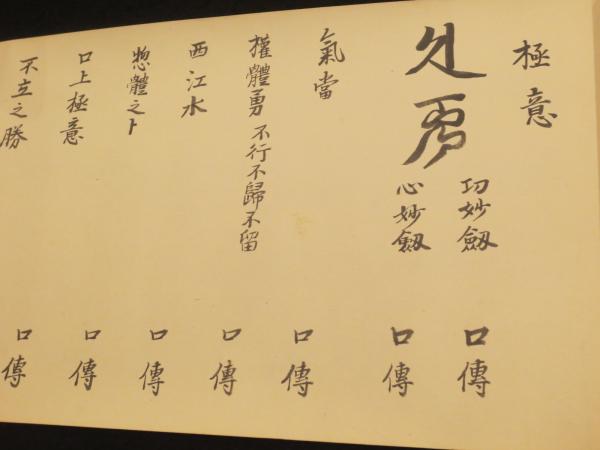 極意
功妙劔 口傳
心妙劔 口傳
氣當 口傳
權體勇 不行不歸不留 口傳
西江水 口傳
惣體之卜 口傳
口上極意 口傳
不立之勝